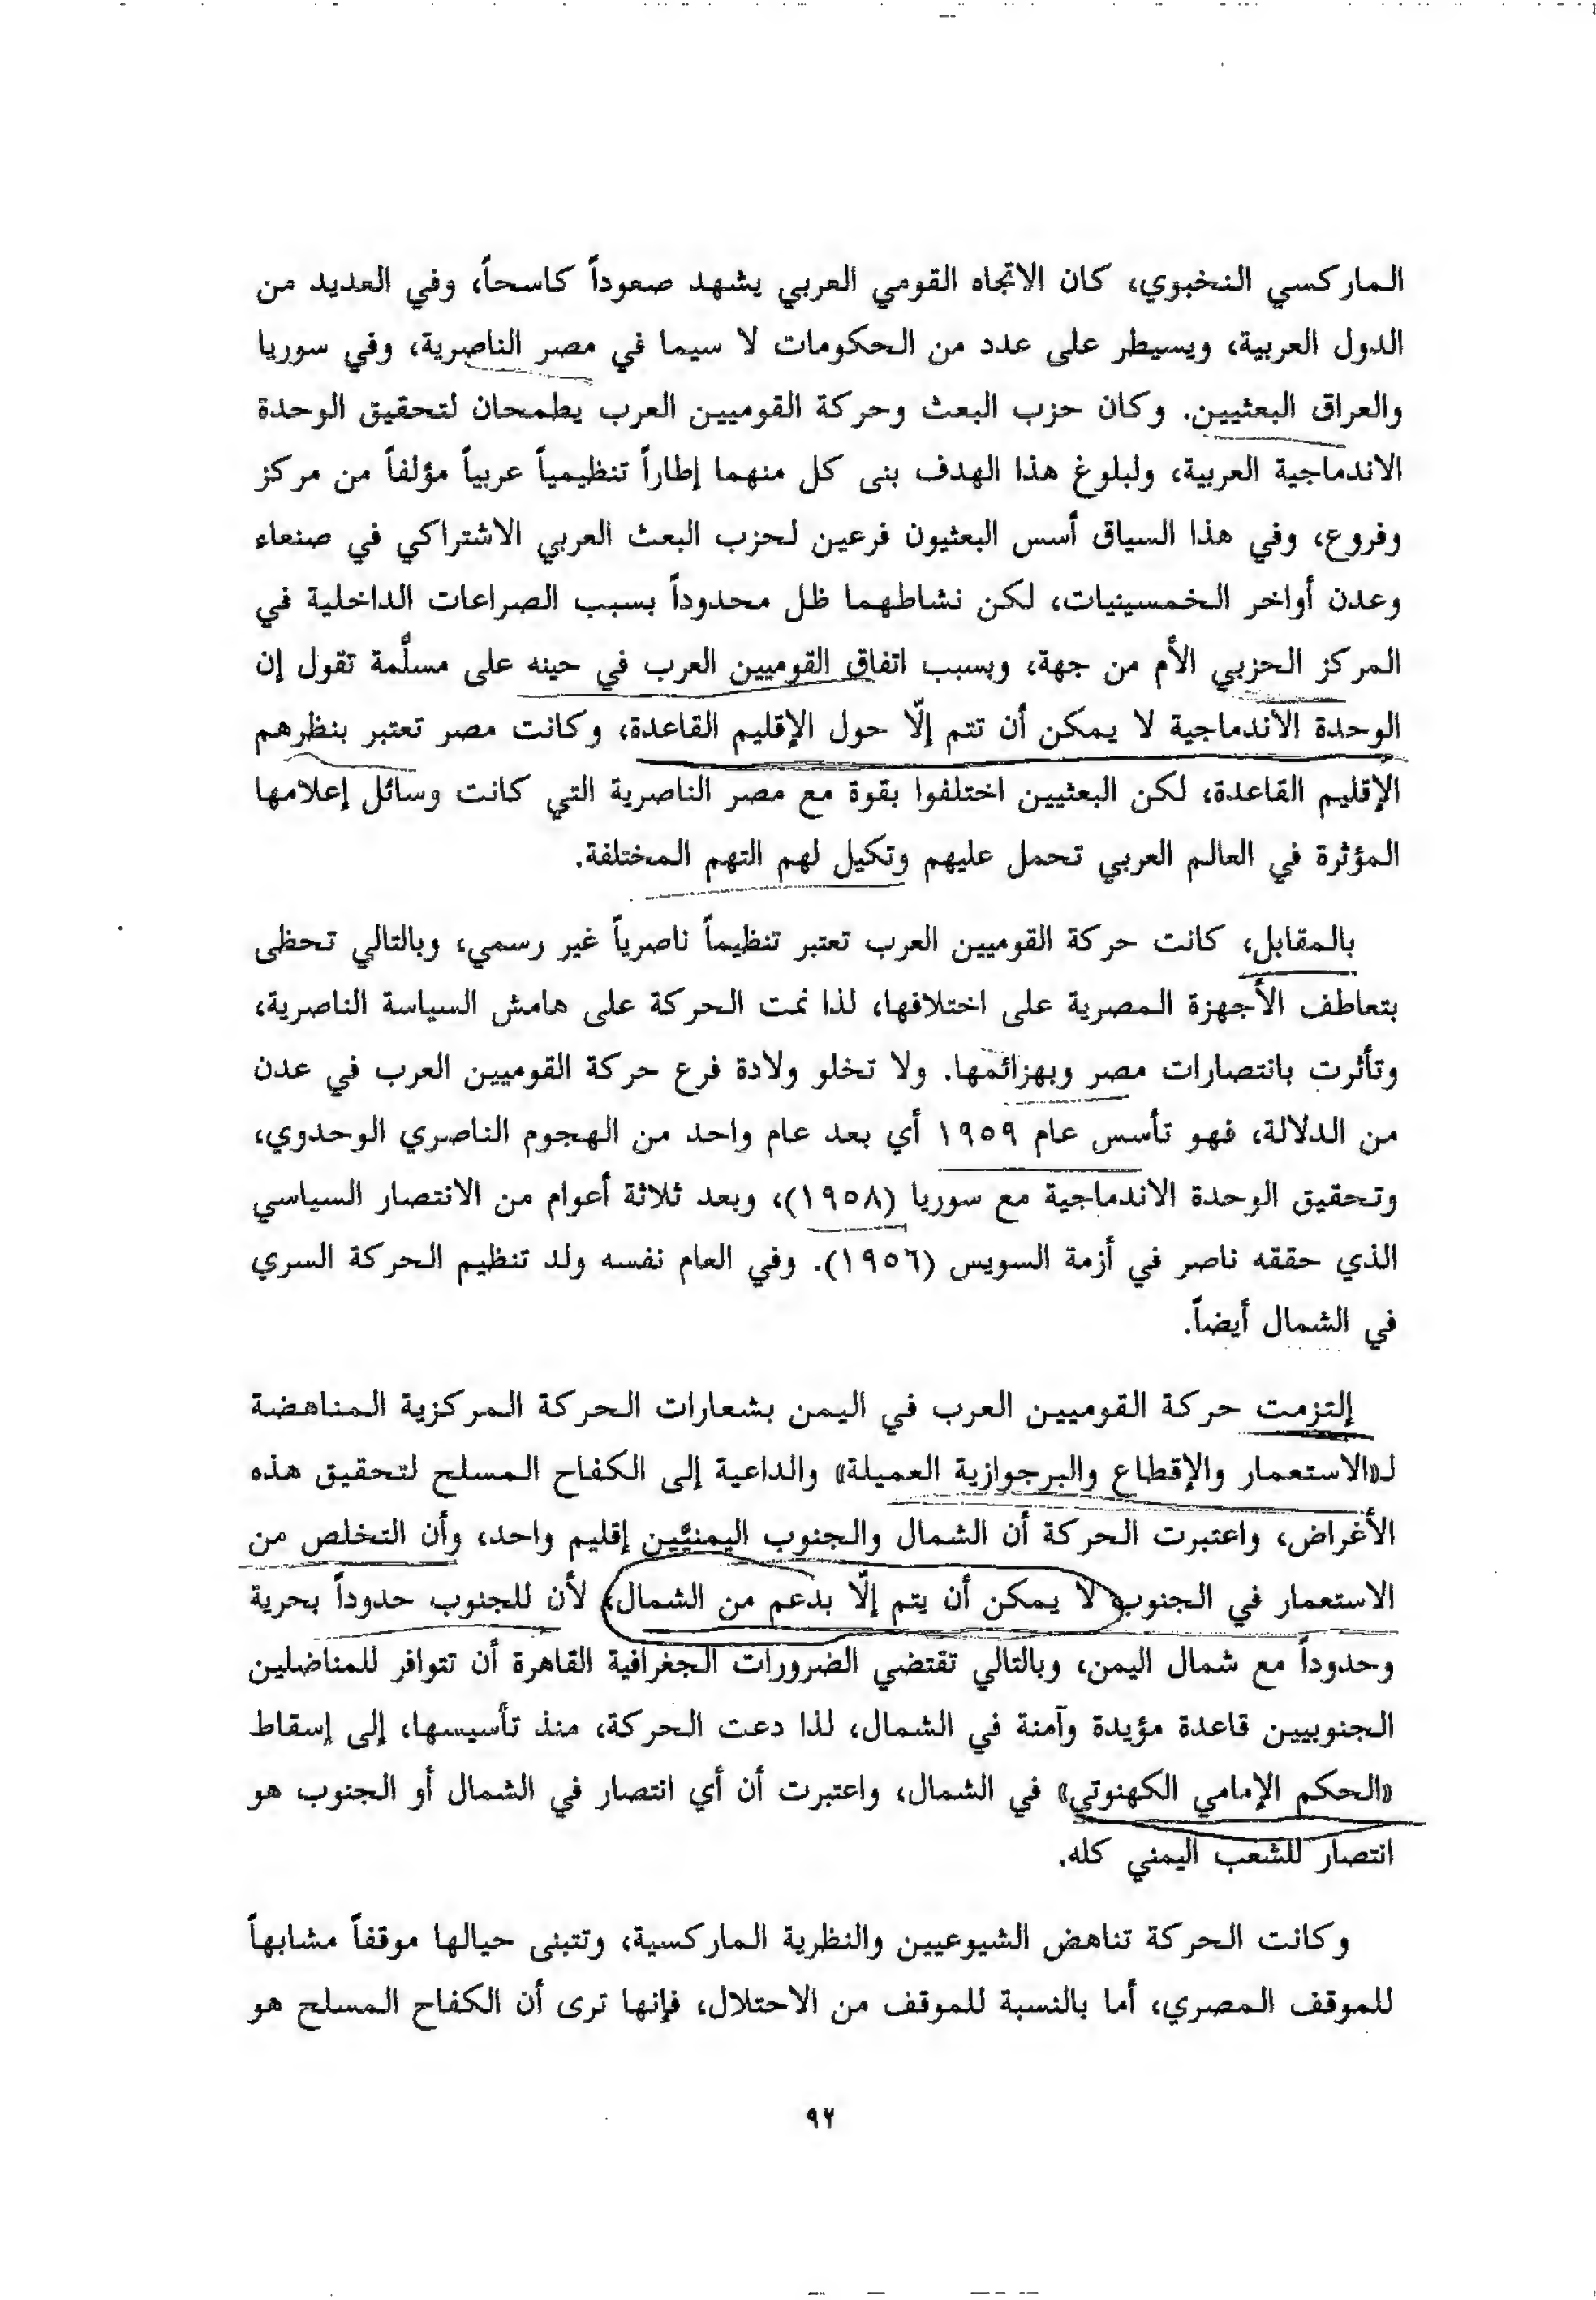 الماركسي النخبوي، كان الاتجاه القومي العربي يشهد صعوداً كاسحاً، وفي العديد من
الدول العربية، ويسيطر على عدد من الحكومات لا سيما في مصر الناصرية، وفي سوريا
والعراق البعثيين. وكان حزب البعث وحركة القوميين العرب يطمحان لتحقيق الوحدة
الاندماجية العربية، ولبلوغ هذا الهدف بنى كل منهما إطاراً تنظيمياً عربياً مؤلفاً من مركز
وفروع، وفي هذا السياق أسس البعثيون فرعين لحزب البعث العربي الاشتراكي في صنعاء
وعدن أواخر الخمسينيات، لكن نشاطهما ظل محدوداً بسبب الصراعات الداخلية في
المركز الحزبي الأم من جهة، وبسبب اتفاق القوميين العرب في حينه على مسلّمة تقول إن
الوحدة الاندماجية لا يمكن أن تتم إلّا حول الإقليم القاعدة، وكانت مصر تعتبر بنظرهم
الإقليم القاعدة، لكن البعثيين اختلفوا بقوة مع مصر الناصرية التي كانت وسائل إعلامها
المؤثرة في العالم العربي تحمل عليهم وتكيل لهم التهم المختلفة.
بالمقابل، كانت حركة القوميين العرب تعتبر تنظيماً ناصرياً غير رسمي، وبالتالي تحظى
بتعاطف الأجهزة المصرية على اختلافها، لذا نمت الحركة على هامش السياسة الناصرية،
وتأثرت بانتصارات مصر وبهزائمها. ولا تخلو ولادة فرع حركة القوميين العرب في عدن
من الدلالة، فهو تأسس عام ١٩٥٩ أي بعد عام واحد من الهجوم الناصري الوحدوي،
وتحقيق الوحدة الاندماجية مع سوريا (١٩٥٨)، وبعد ثلاثة أعوام من الانتصار السياسي
الذي حققه ناصر في أزمة السويس (١٩٥٦). وفي العام نفسه ولد تنظيم الحركة السري
في الشمال أيضاً.
إلتزمت حركة القوميين العرب في اليمن بشعارات الحركة المركزية المناهضة
لـ«الاستعمار والإقطاع والبرجوازية العميلة» والداعية إلى الكفاح المسلح لتحقيق هذه
الأغراض، واعتبرت الحركة أن الشمال والجنوب اليمنيَّين إقليم واحد، وأن التخلص من
الاستعمار في الجنوب لا يمكن أن يتم إلّا بدعم من الشمال، لأن للجنوب حدوداً بحرية
وحدوداً مع شمال اليمن، وبالتالي تقتضي الضرورات الجغرافية القاهرة أن تتوافر للمناضلين
الجنوبيين قاعدة مؤيدة وآمنة في الشمال، لذا دعت الحركة، منذ تأسيسها، إلى إسقاط
«الحكم الإمامي الكهنوتي» في الشمال، واعتبرت أن أي انتصار في الشمال أو الجنوب هو
انتصار للشعب اليمني كله.
وكانت الحركة تناهض الشيوعيين والنظرية الماركسية، وتتبنى حيالها موقفاً مشابهاً
للموقف المصري، أما بالنسبة للموقف من الاحتلال، فإنها ترى أن الكفاح المسلح هو
٩٢